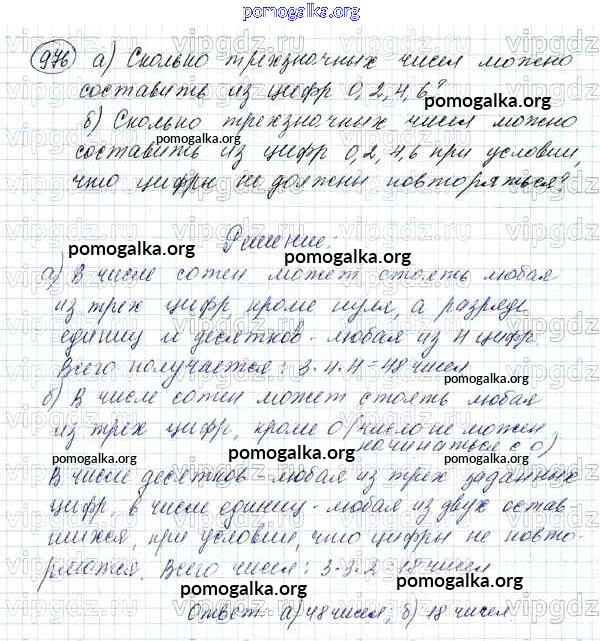 pomogalka.org
976 а) Сколько трехзначных чисел можно
составить из цифр 0, 2, 4, 6?
pomogalka.org
б) Сколько трехзначных чисел можно
pomogalka.org
составить из цифр 0, 2, 4, 6 при условии,
что цифры не должны повторяться?
pomogalka.org
Решение:
pomogalka.org
pomogalka.org
а) В числе сотен может стоять любая
из трех цифр, кроме нуля, а разряде
единиц и десятков - любая из 4 цифр.
Всего получается: 3·4·4=48 чисел
pomogalka.org
б) В числе сотен может стоять любая
из трех цифр, кроме 0 (число не может
начинаться с 0)
pomogalka.org
pomogalka.org
pomogalka.org
В числе десятков - любая из трех заданных
цифр, в числе единиц - любая из двух остав
шихся, при условии, что цифры не повто-
ряются. Всего чисел: 3·3·2=18 чисел
pomogalka.org
Ответ: а) 48 чисел; б) 18 чисел.
pomogalka.org